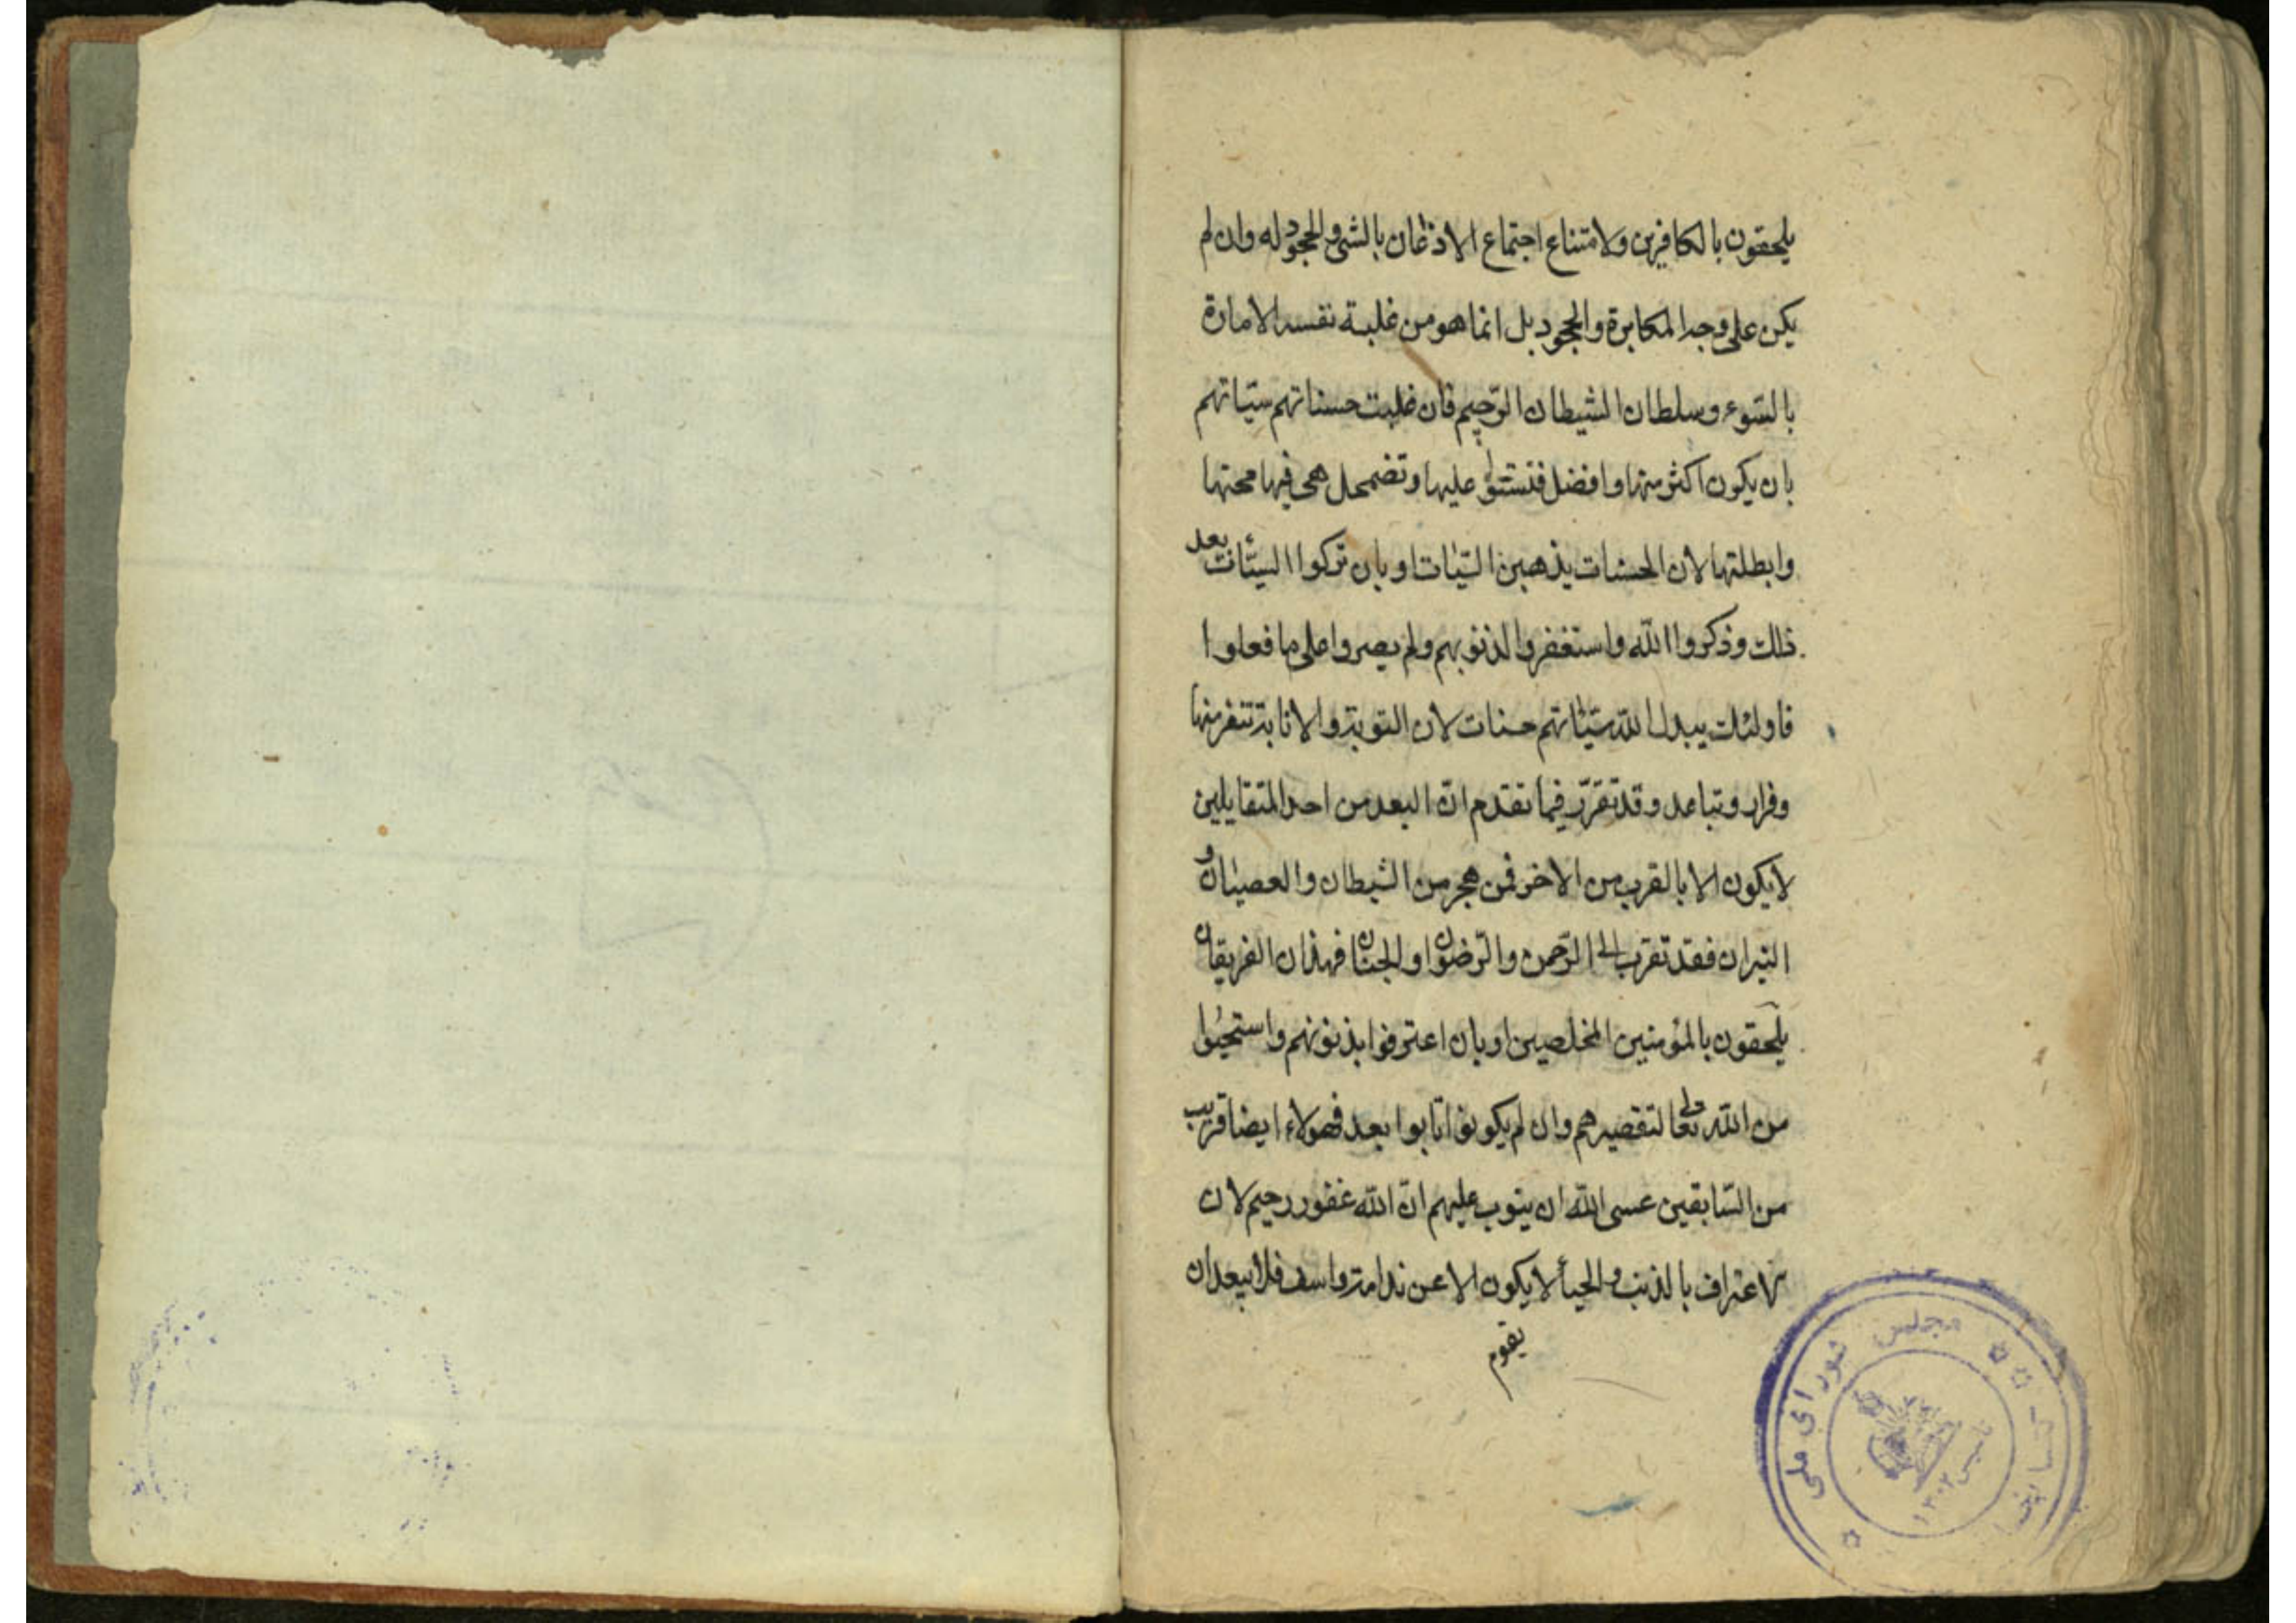 يلحقون بالكافرين ولامتناع اجتماع الاذعان بالشئ والجحود له وان لم
يكن على وجه المكابرة والجحود بل انما هو من غلبة نفسه الامارة
بالسّوء وسلطان الشيطان الرّجيم فان غلبت حسناتهم سيّاتهم
بان يكون اكثر منها وافضل فتستولى عليها وتضمحل هى فيها محتها
وابطلتها لان الحسنات يذهبن السّيّات او بان تركوا السيئات بعد
ذلك وذكروا اللّه واستغفروا لذنوبهم ولم يصروا على ما فعلوا
فاولئك يبدل اللّه سيّئاتهم حسنات لان التوبة والانابة تنفر منها
وفرار وتباعد وقد تقرّر فيما تقدم انّ البعد من احد المتقابلين
لا يكون الا بالقرب من الاخر فمن هجر من الشيطان والعصيان و
النيران فقد تقرب الى الرّحمن والرّضوان والجنان فهذان الفريقان
يلحقون بالمؤمنين المخلصين او بان اعترفوا بذنوبهم واستحيوا
من اللّه تعالى لتقصيرهم وان لم يكونوا تابوا بعد فهولاء ايضا قريب
من السّابقين عسى اللّه ان يتوب عليهم انّ اللّه غفور رحيم لان
الاعتراف بالذنب والحيأ لا يكون الا عن ندامة واسف فلا يبعد ان
يقوم
مجلس شورای ملی
کتابخانه
تاسیس ۱۳۰۲